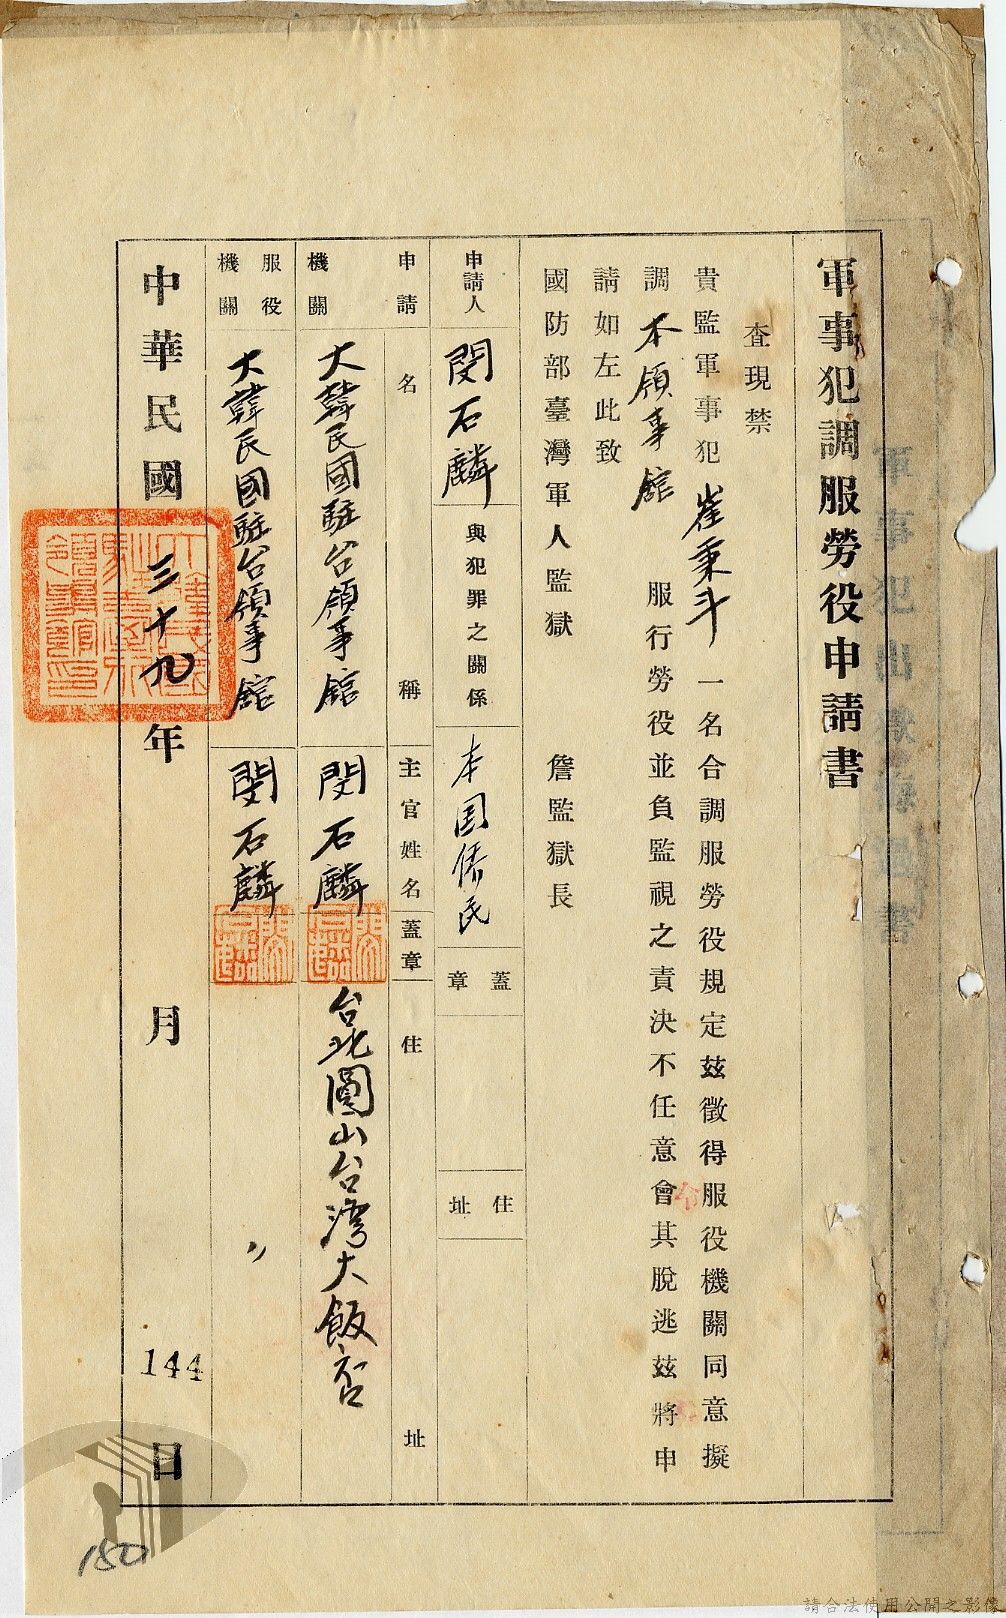 軍事犯調服勞役申請書
查現禁
貴監軍事犯崔秉斗一名合調服勞役規定茲徵得服役機關同意擬
調本領事館服行勞役並負監視之責決不任意會其脫逃茲將申
請如左此致
國防部臺灣軍人監獄 詹監獄長
申請人 閔石麟 與犯罪之關係 本国僑民 蓋章 住址
申請機關 名稱 主官姓名 蓋章 住址
大韓民國駐台領事館 閔石麟 台北圓山台灣大飯店
服役機關 大韓民國駐台領事館 閔石麟 〃
中華民國三十九年 月 日
144
150
請合法使用公開之影像